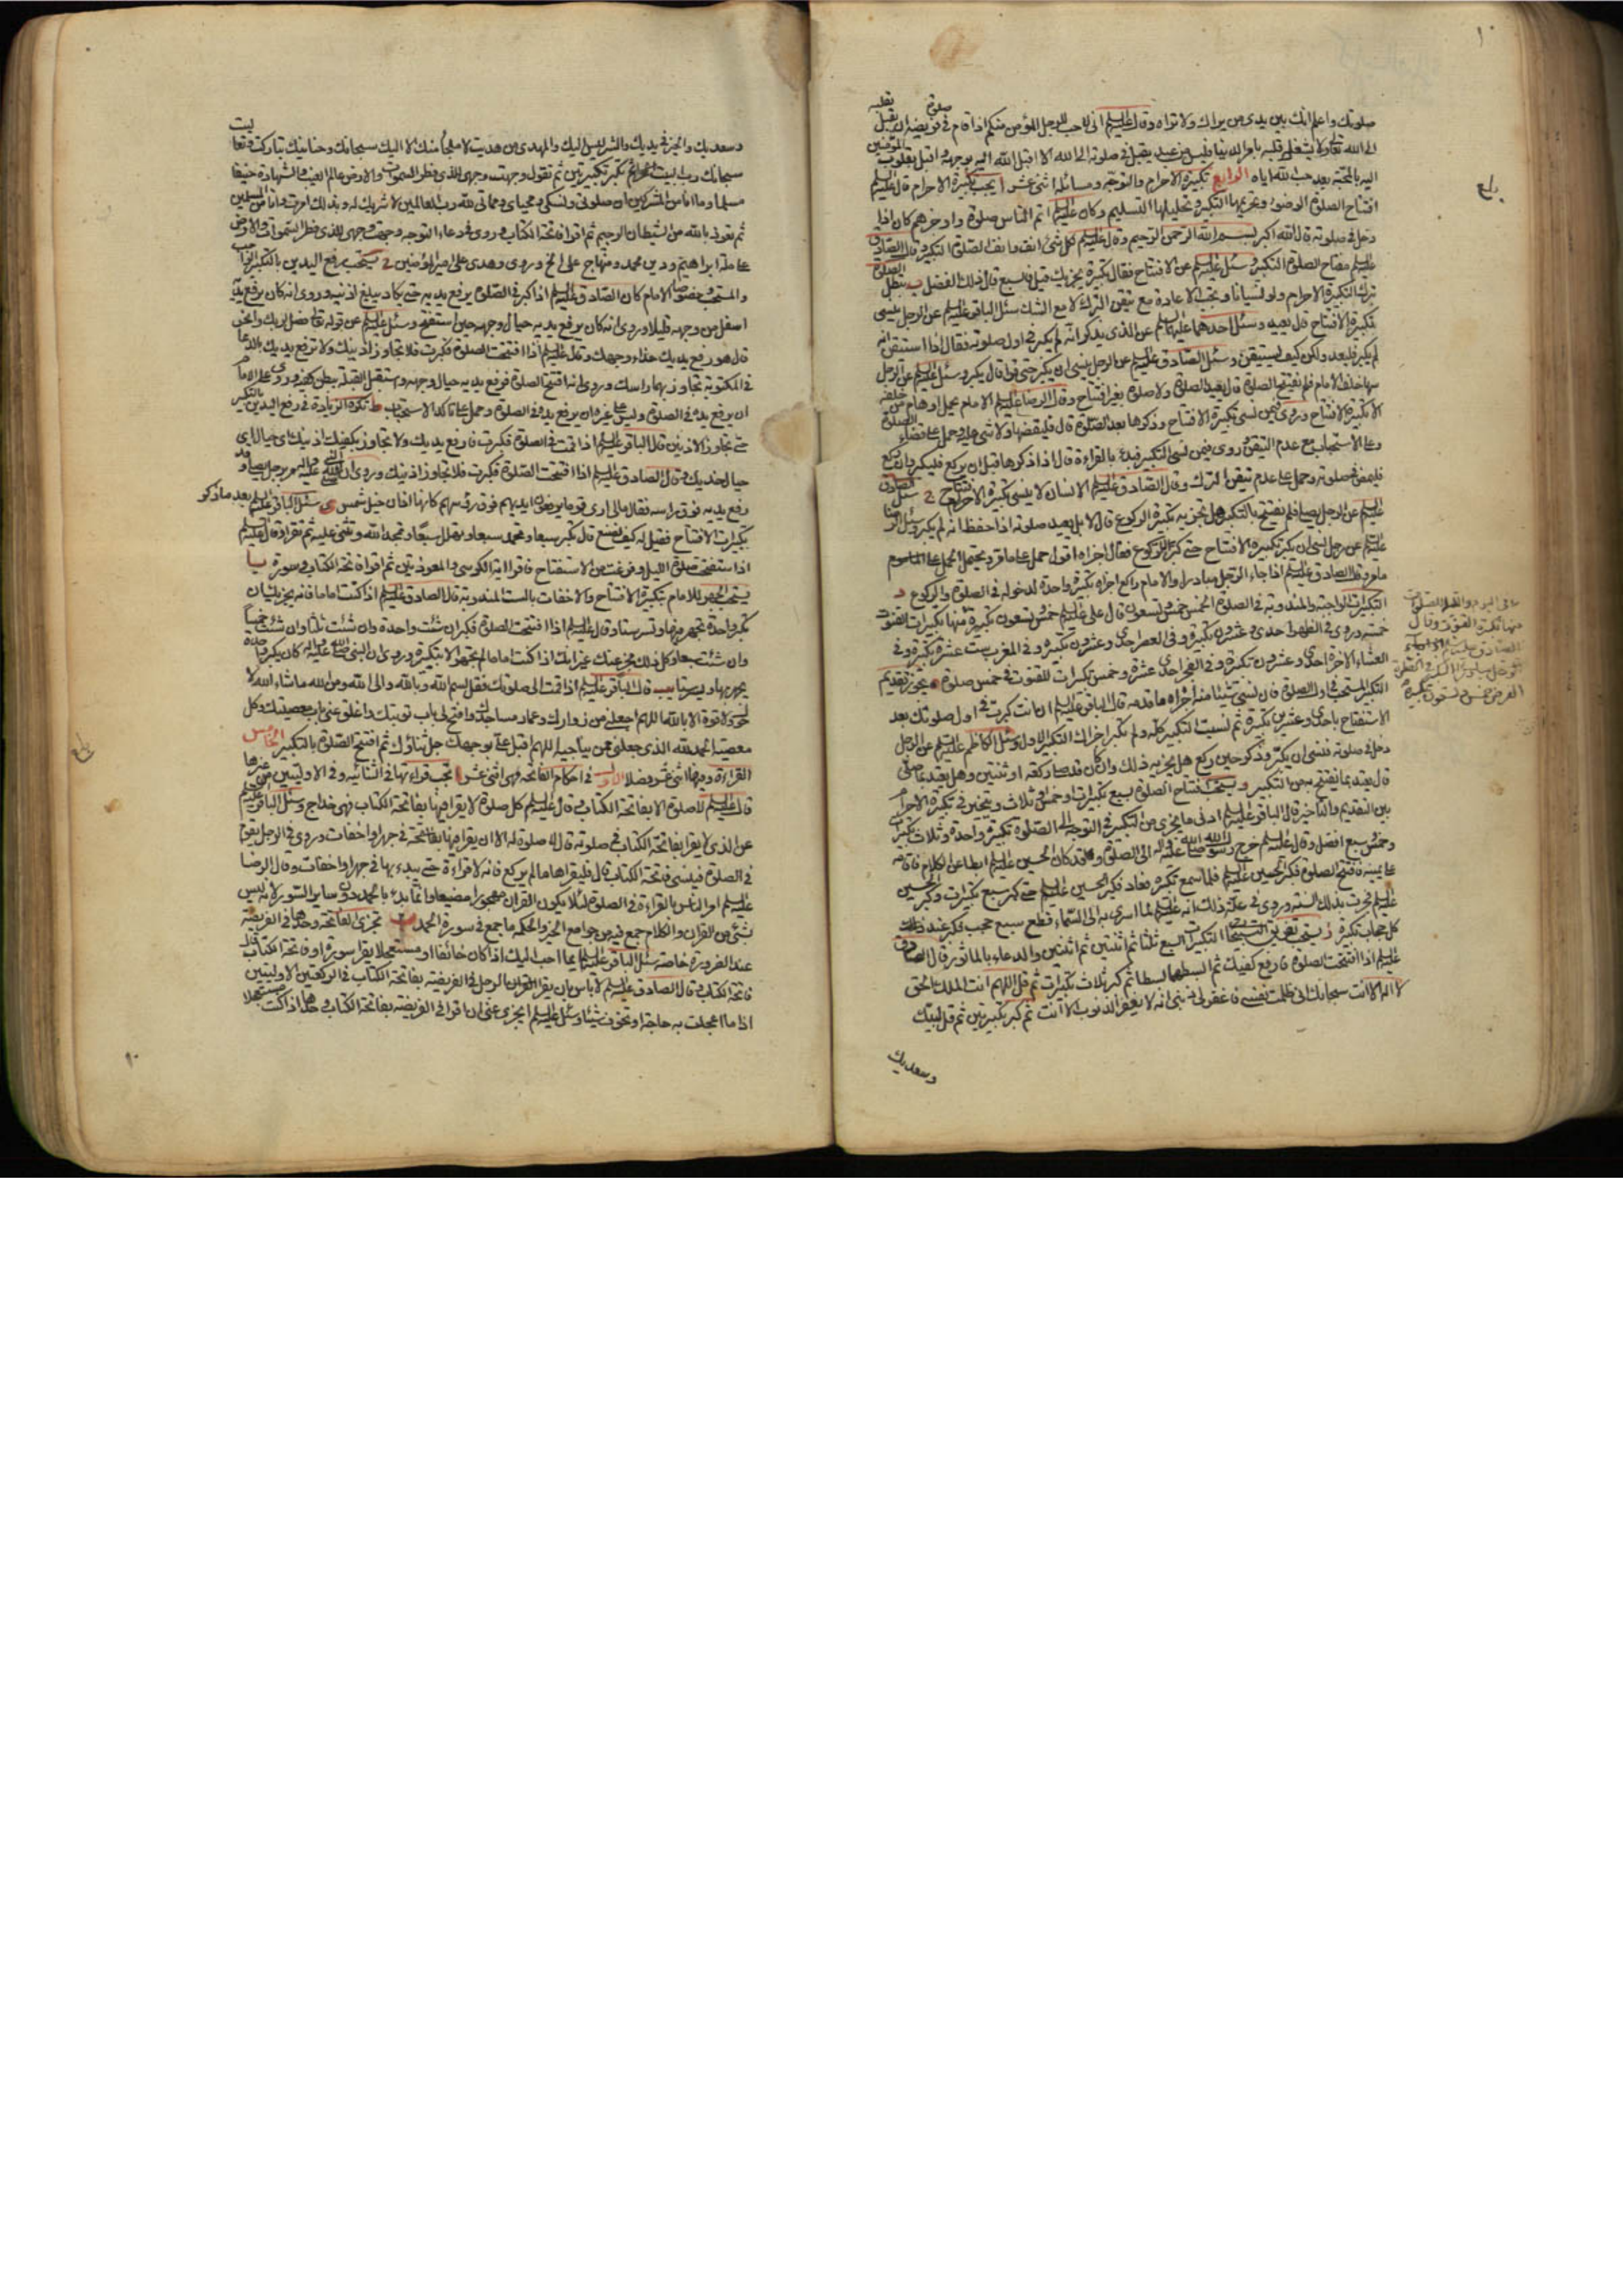 صلوتك واعلم انك بين يدى من يراك ولا تراه وقال عليه السلم انى لاحب للرجل المؤمن منكم اذا قام فى صلوة فريضة ان يقبل بقلبه
الى الله تعالى ولا يشغل قلبه بامر الدنيا فليس من عبد يقبل فى صلوته الى الله الا اقبل الله اليه بوجهه واقبل بقلوب المؤمنين
اليه بالمحبة بعد حب الله اياه الرابع تكبيرة الاحرام والتوجه ومسائله اثنى عشر ا يجب تكبيرة الاحرام قال عليه السلم
افتتاح الصلوة الوضوء وتحريمها التكبير وتحليلها التسليم وكان عليه السلم اتم الناس صلوة واوجزهم كان اذا
دخل فى صلوته قال الله اكبر بسم الله الرحمن الرحيم وقال عليه السلم كل شئ انف وانف الصلوة التكبير وقال الصادق
عليه السلم مفتاح الصلوة التكبير وسئل عليه السلم عن الافتتاح فقال تكبيرة يجزيك قيل فالسبع قال ذلك الفضل ب تبطل الصلوة
بترك تكبيرة الاحرام ولو نسيانا ويجب الاعادة مع تيقن الترك لا مع الشك سئل الباقر عليه السلم عن الرجل ينسى
تكبيرة الافتتاح قال يعيد وسئل احدهما عليهما السلم عن الذى يذكر انه لم يكبر فى اول صلوته فقال اذا استيقن انه
لم يكبر فليعد ولكن كيف يستيقن وسئل الصادق عليه السلم عن الرجل ينسى ان يكبر حتى قرأ قال يكبر وسئل عليه السلم عن الرجل
سها خلف الامام فلم يفتتح الصلوة قال يعيد الصلوة ولا صلوة بغير افتتاح وقال الرضا عليه السلم الامام يحمل اوهام من خلفه
الا تكبيرة الافتتاح وروى فيمن نسى تكبيرة الافتتاح وذكرها بعد الصلوة قال فليقضها ولا شئ عليه وحمل على قضاء الصلوة
وعلى الاستحباب مع عدم التيقن وروى فيمن نسى التكبير فبدء بالقراءة قال اذا ذكرها قبل ان يركع فليكبر وان ركع
فليمض فى صلوته وحمل على عدم تيقن الترك وقال الصادق عليه السلم الانسان لا ينسى تكبيرة الافتتاح ج سئل الصادق
عليه السلم عن الرجل يصلى فلم يفتتح بالتكبير هل تجزيه تكبيرة الركوع قال لا بل يعيد صلوته اذا حفظ انه لم يكبر وسئل الرضا
عليه السلم عن رجل نسى ان يكبر تكبيرة الافتتاح حتى كبر للركوع فقال اجزاه اقول حمل على ما مر ويحتمل الحمل على الماموم
ما مر وقال الصادق عليه السلم اذا جاء الرجل مبادرا والامام راكع اجزاه تكبيرة واحدة لدخوله فى الصلوة والركوع د
التكبيرات الواجبة والمندوبة فى الصلوة الخمس خمس وتسعون قال على عليه السلم خمس وتسعون تكبيرة منها تكبيرات القنوت
خمسة وروى فى الظهر احدى وعشرون تكبيرة وفى العصر احدى وعشرون تكبيرة وفى المغرب ست عشرة تكبيرة وفى
العشاء الاخرة احدى وعشرون تكبيرة وفى الفجر احدى عشرة وخمس تكبيرات للقنوت فى خمس صلوة ه يجوز تقديم
التكبير المستحب فى اول الصلوة فان نسى شيئا منه اجزاه ما قدمه قال الباقر عليه السلم اذا انت كبرت فى اول صلوتك بعد
الاستفتاح باحدى وعشرين تكبيرة ثم نسيت التكبير كله ولم تكبر اجزاك التكبير الاول وسئل الكاظم عليه السلم عن الرجل
دخل فى صلوته فنسى ان يكبر وذكر حين ركع هل يجزيه ذلك وان كان قد صلى ركعة او ثنتين وهل يعتد بما صلى
قال يعتد بما يفتتح به من التكبير و يستحب افتتاح الصلوة بسبع تكبيرات او خمس او ثلاث ويتخير فى تكبيرة الاحرام
بين التقديم والتاخير قال الباقر عليه السلم ادنى ما يجزى من التكبير فى التوجه الى الصلوة تكبيرة واحدة وثلاث تكبيرات
وخمس وسبع افضل وقال عليه السلم خرج رسول الله صلى الله عليه واله الى الصلوة وقد كان الحسين عليه السلم ابطا عن الكلام فاقامه
على يمينه فافتتح الصلوة فكبر الحسين عليه السلم فلما سمع تكبيره فعاد فكبر الحسين عليه السلم حتى كبر سبع تكبيرات وكبر الحسين
عليه السلم فجرت بذلك السنة وروى فى علة ذلك انه عليه السلم لما اسرى به الى السماء قطع سبع حجب فكبر عند
كل حجاب تكبيرة ز يستحب تفريق التكبيرات السبع ثلثا ثم اثنتين ثم اثنتين والدعاء بالماثور قال الصادق
عليه السلم اذا افتتحت الصلوة فارفع كفيك ثم ابسطهما بسطا ثم كبر ثلاث تكبيرات ثم قل اللهم انت الملك الحق
لا اله الا انت سبحانك انى ظلمت نفسى فاغفر لى ذنبى انه لا يغفر الذنوب الا انت ثم كبر تكبيرتين ثم قل لبيك
وسعديك
وسعديك والخير فى يديك والشر ليس اليك والمهدى من هديت لا ملجأ منك الا اليك سبحانك وحنانيك تباركت وتعاليت
سبحانك رب البيت ثم كبر تكبيرتين ثم تقول وجهت وجهى للذى فطر السموات والارض عالم الغيب والشهادة حنيفا
مسلما وما انا من المشركين ان صلوتى ونسكى ومحياى ومماتى لله رب العالمين لا شريك له وبذلك امرت وانا من المسلمين
ثم تعوذ بالله من الشيطان الرجيم ثم اقرا فاتحة الكتاب وروى فى دعاء التوجه وجهت وجهى للذى فطر السموات والارض
على ملة ابراهيم ودين محمد ومنهاج على الخ وروى وهدى على امير المؤمنين ح يستحب رفع اليدين بالتكبير الواجب
والمستحب وخصوصا الامام كان الصادق عليه السلم اذا كبر فى الصلوة يرفع يديه حتى يكاد يبلغ اذنيه وروى انه كان يرفع يديه
اسفل من وجهه قليلا وروى انه كان يرفع يديه حيال وجهه حين استفتح وسئل عليه السلم عن قوله تعالى فصل لربك وانحر
قال هو رفع يديك حذاء وجهك وقال عليه السلم اذا افتتحت الصلوة فكبرت فلا تجاوز اذنيك ولا ترفع يديك بالدعاء
فى المكتوبة تجاوز بهما راسك وروى اذا افتتح الصلوة فرفع يديه حيال وجهه واستقبل القبلة ببطن كفيه وروى على الامام
ان يرفع يده فى الصلوة وليس على غيره ان يرفع يده فى الصلوة وحمل على تاكد الاستحباب ط تكره الزيادة فى رفع اليدين بالتكبير
حتى تجاوز الاذنين قال الباقر عليه السلم اذا قمت فى الصلوة فكبرت فارفع يديك ولا تجاوز بكفيك اذنيك اى حيال
حيال خديك وقال الصادق عليه السلم اذا افتتحت الصلوة فكبرت فلا تجاوز اذنيك وروى ان النبى صلى الله عليه واله مر برجل يصلى وقد
رفع يديه فوق راسه فقال مالى ارى قوما يرفعون ايديهم فوق رؤسهم كانها اذان خيل شمس ى سئل الباقر عليه السلم بعد ما ذكر
تكبيرات الافتتاح فقيل له كيف نصنع قال تكبر سبعا وتحمد سبعا وتهلل سبعا وتمجد الله وتثنى عليه ثم تقرا وقال عليه السلم
اذا استفتحت صلوة الليل وفرغت من الاستفتاح فاقرا اية الكرسى والمعوذتين ثم اقرا فاتحة الكتاب وسورة يا
يستحب الجهر للامام بتكبيرة الافتتاح والاخفات بالست المندوبة قال الصادق عليه السلم اذا كنت اماما فانه يجزيك ان
تكبر واحدة تجهر فيها وتسر ستا وقال عليه السلم اذا افتتحت الصلوة فكبر ان شئت واحدة وان شئت ثلثا وان شئت خمسا
وان شئت سبعا وكل ذلك مجز عنك غير انك اذا كنت اماما لم تجهر الا بتكبيرة وروى ان النبى صلى الله عليه واله كان يكبر واحدة
يجهر بها ويسر ستا يب قال الباقر عليه السلم اذا قمت الى صلوتك فقل بسم الله وبالله والى الله ومن الله وما شاء الله لا
حول ولا قوة الا بالله اللهم اجعلنى من زوارك وعمار مساجدك وافتح لى باب توبتك واغلق عنى باب معصيتك وكل
معصية الحمد لله الذى جعلنى ممن يناجيه اللهم اقبل على بوجهك جل ثناؤك ثم افتتح الصلوة بالتكبير الخامس
القراءة وفيها اثنى عشر فصلا الاول فى احكام الفاتحة وهى اثنى عشر ا تجب قراءتها فى الثنائية وفى الاوليين من غيرها
قال عليه السلم لا صلوة الا بفاتحة الكتاب وقال عليه السلم كل صلوة لا يقرا فيها بفاتحة الكتاب فهى خداج وسئل الباقر عليه السلم
عن الذى لا يقرا بفاتحة الكتاب فى صلوته قال لا صلوة له الا ان يقرا بها فى جهر او اخفات وروى فى الرجل يقوم
فى الصلوة فينسى فاتحة الكتاب قال فليقراها ما لم يركع فانه لا قراءة حتى يبدء بها فى جهر او اخفات وقال الرضا
عليه السلم امر الناس بالقراءة فى الصلوة لئلا يكون القران مهجورا مضيعا وانما بدء بالحمد دون ساير السور لانه ليس
شئ من القران والكلام جمع فيه من جوامع الخير والحكمة ما جمع فى سورة الحمد ب تجزى الفاتحة وحدها فى الفريضة
عند الضرورة خاصة سئل الباقر عليه السلم ايما احب اليك اذا كان خائفا او مستعجلا يقرا سورة او فاتحة الكتاب قال
فاتحة الكتاب وقال الصادق عليه السلم لا باس بان يقرا الرجل فى الفريضة بفاتحة الكتاب فى الركعتين الاوليين
اذا ما اعجلت به حاجة او تخوف شيئا وسئل عليه السلم ايجزى عنى ان اقرا فى الفريضة بفاتحة الكتاب وحدها اذا كنت مستعجلا